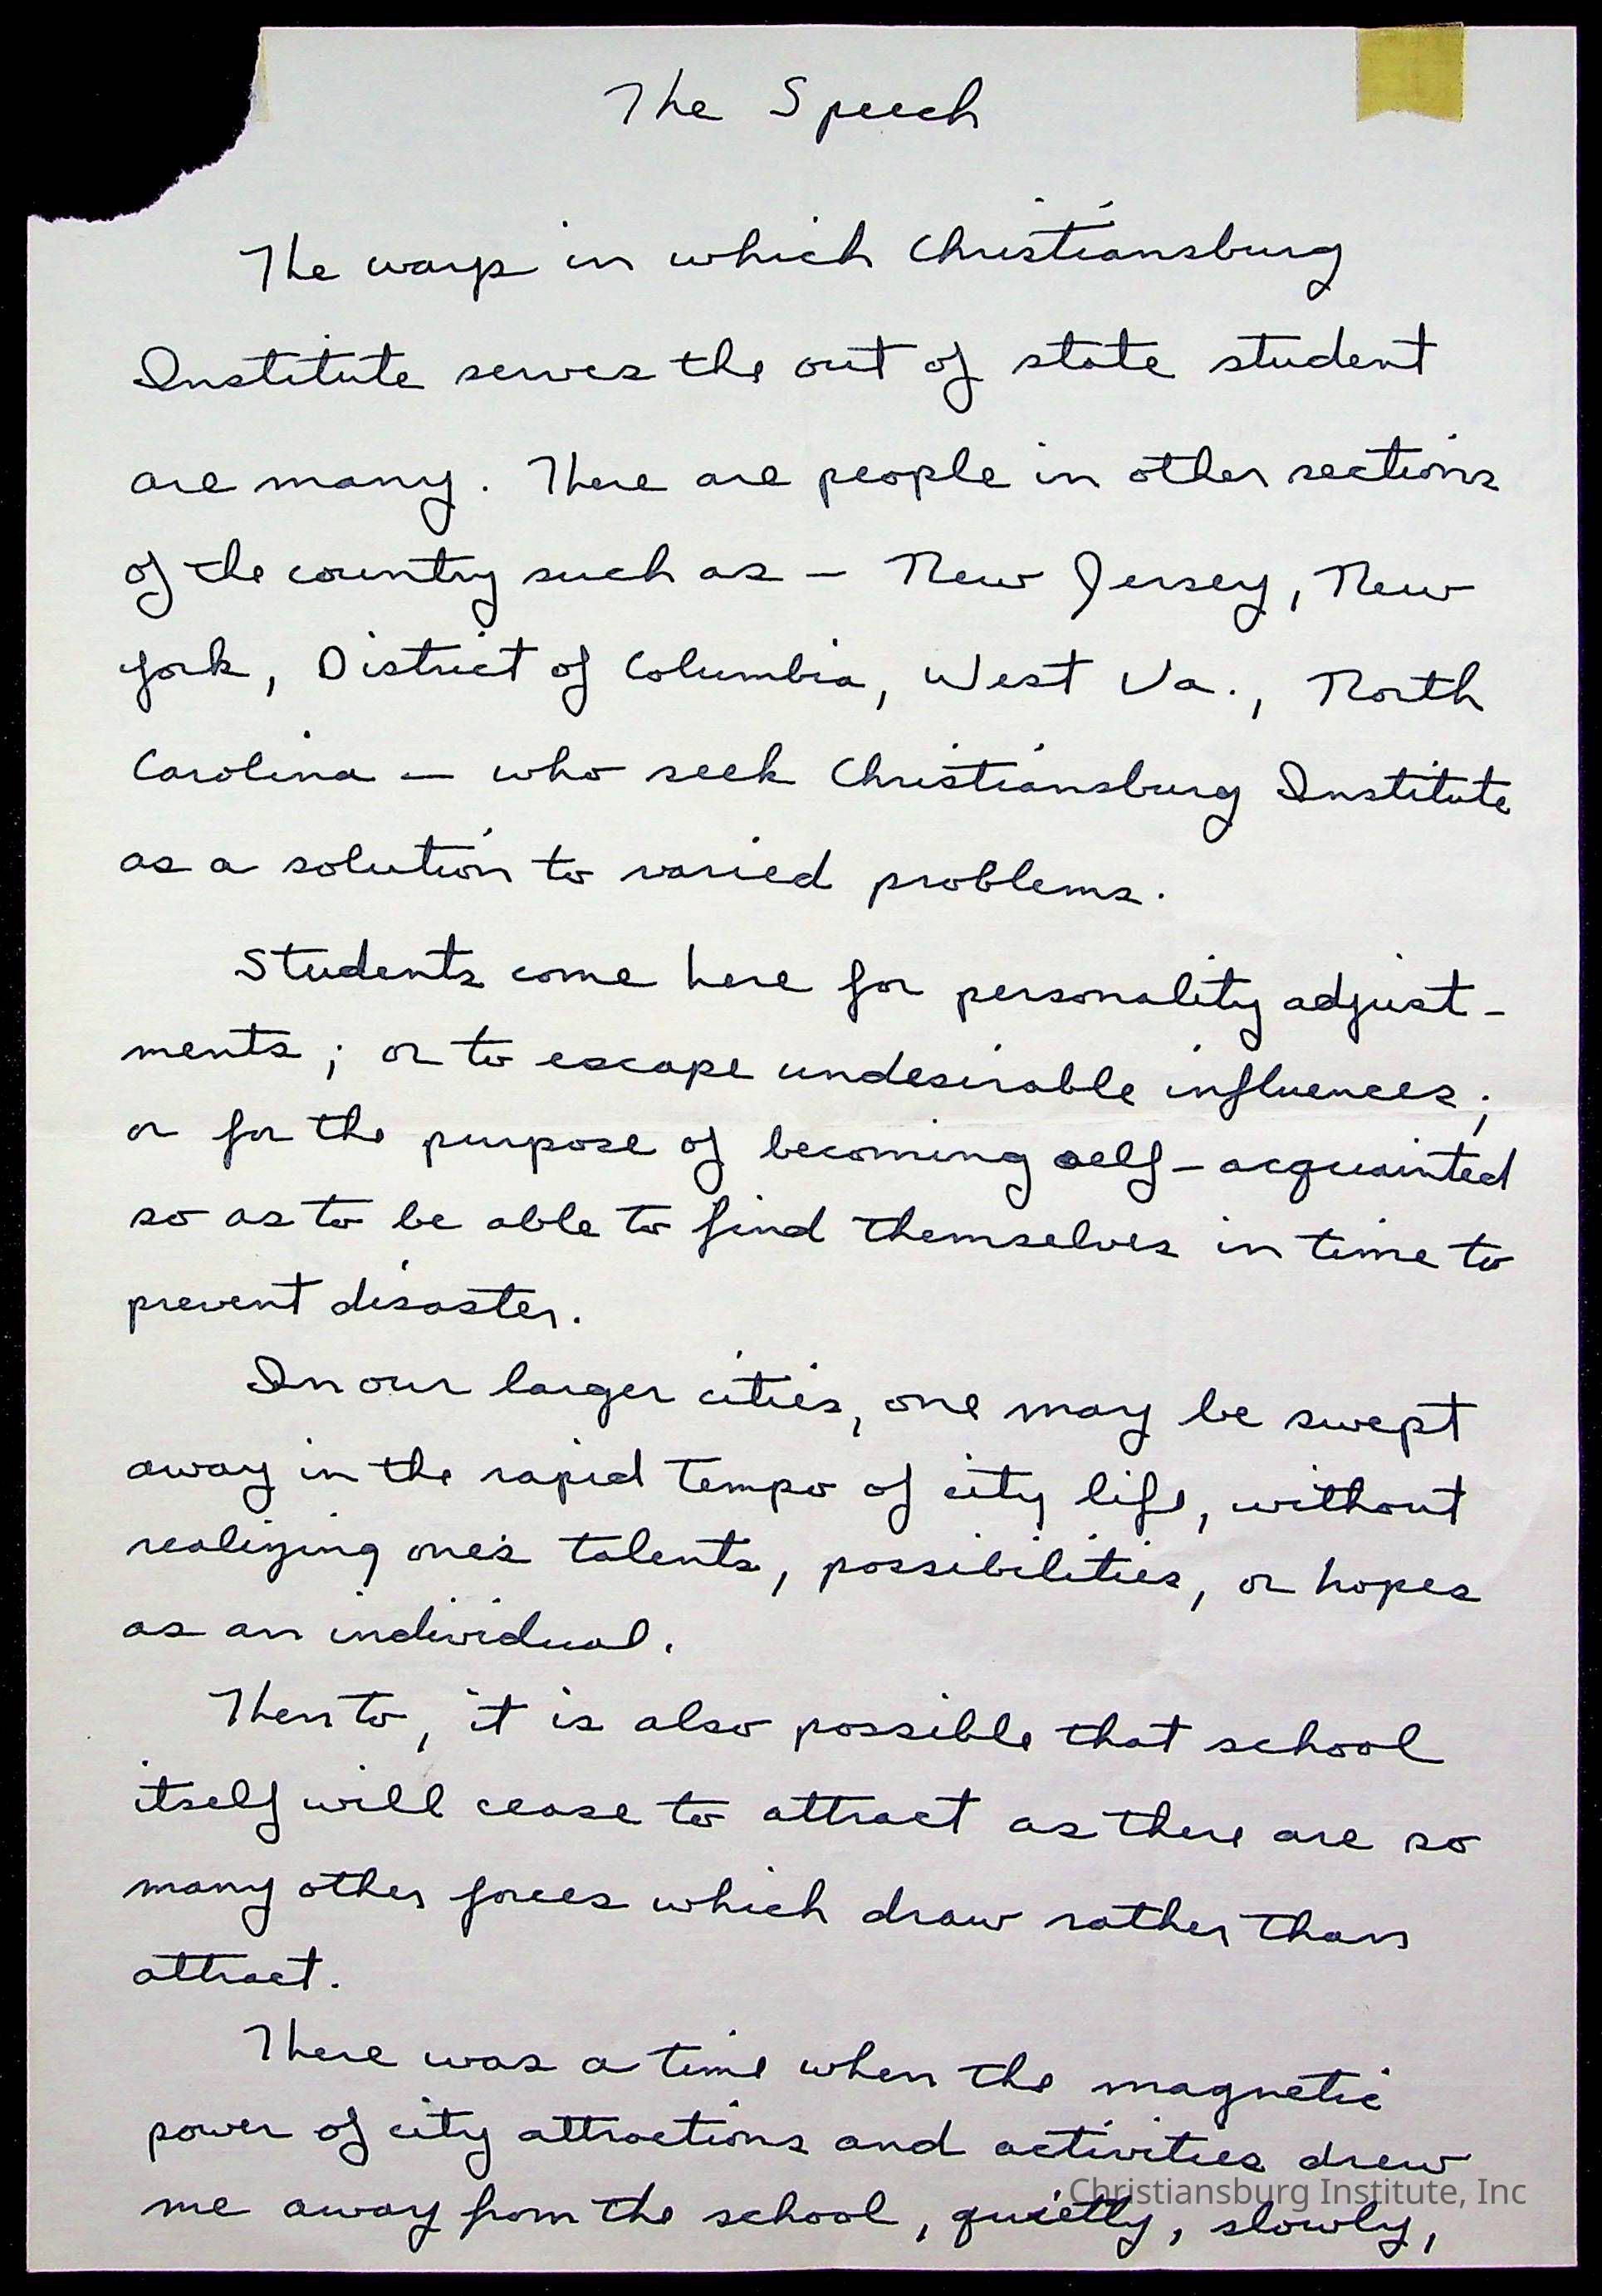 The Speech
The ways in which Christiansburg
Institute serves the out of state student
are many. There are people in other sections
of the country such as — New Jersey, New
York, District of Columbia, West Va., North
Carolina — who seek Christiansburg Institute
as a solution to varied problems.
Students come here for personality adjust-
ments; or to escape undesirable influences;
or for the purpose of becoming self-acquainted
so as to be able to find themselves in time to
prevent disaster.
In our larger cities, one may be swept
away in the rapid tempo of city life, without
realizing one's talents, possibilities, or hopes
as an individual.
Then to, it is also possible that school
itself will cease to attract as there are so
many other forces which draw rather than
attract.
There was a time when the magnetic
power of city attractions and activities drew
me away from the school, quietly, slowly,
Christiansburg Institute, Inc